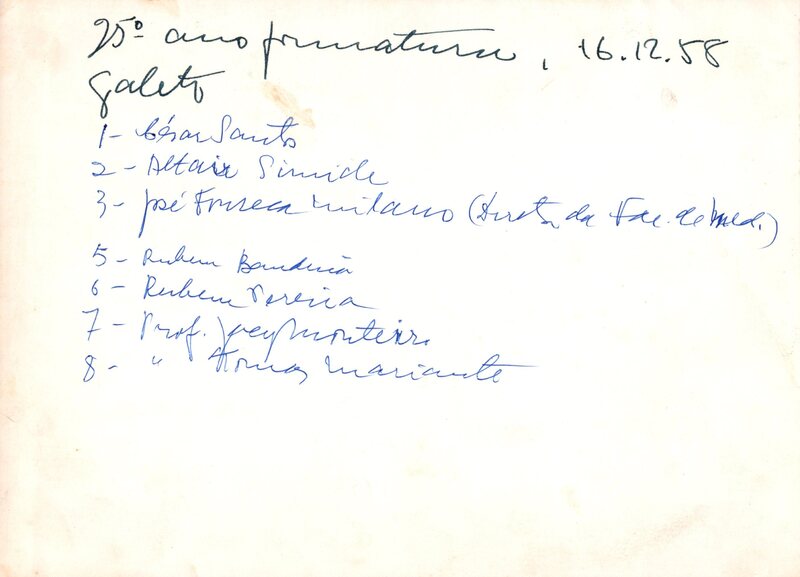 25º ano formatura, 16.12.58
galeto
1- César Santos
2- Altair
3- José Fonseca Milano (Diretor da Fac. de Med.)
5- Rubem
6- Rubem Pereira
7- Prof. Jacy Monteiro
8- " Tomas Mariante